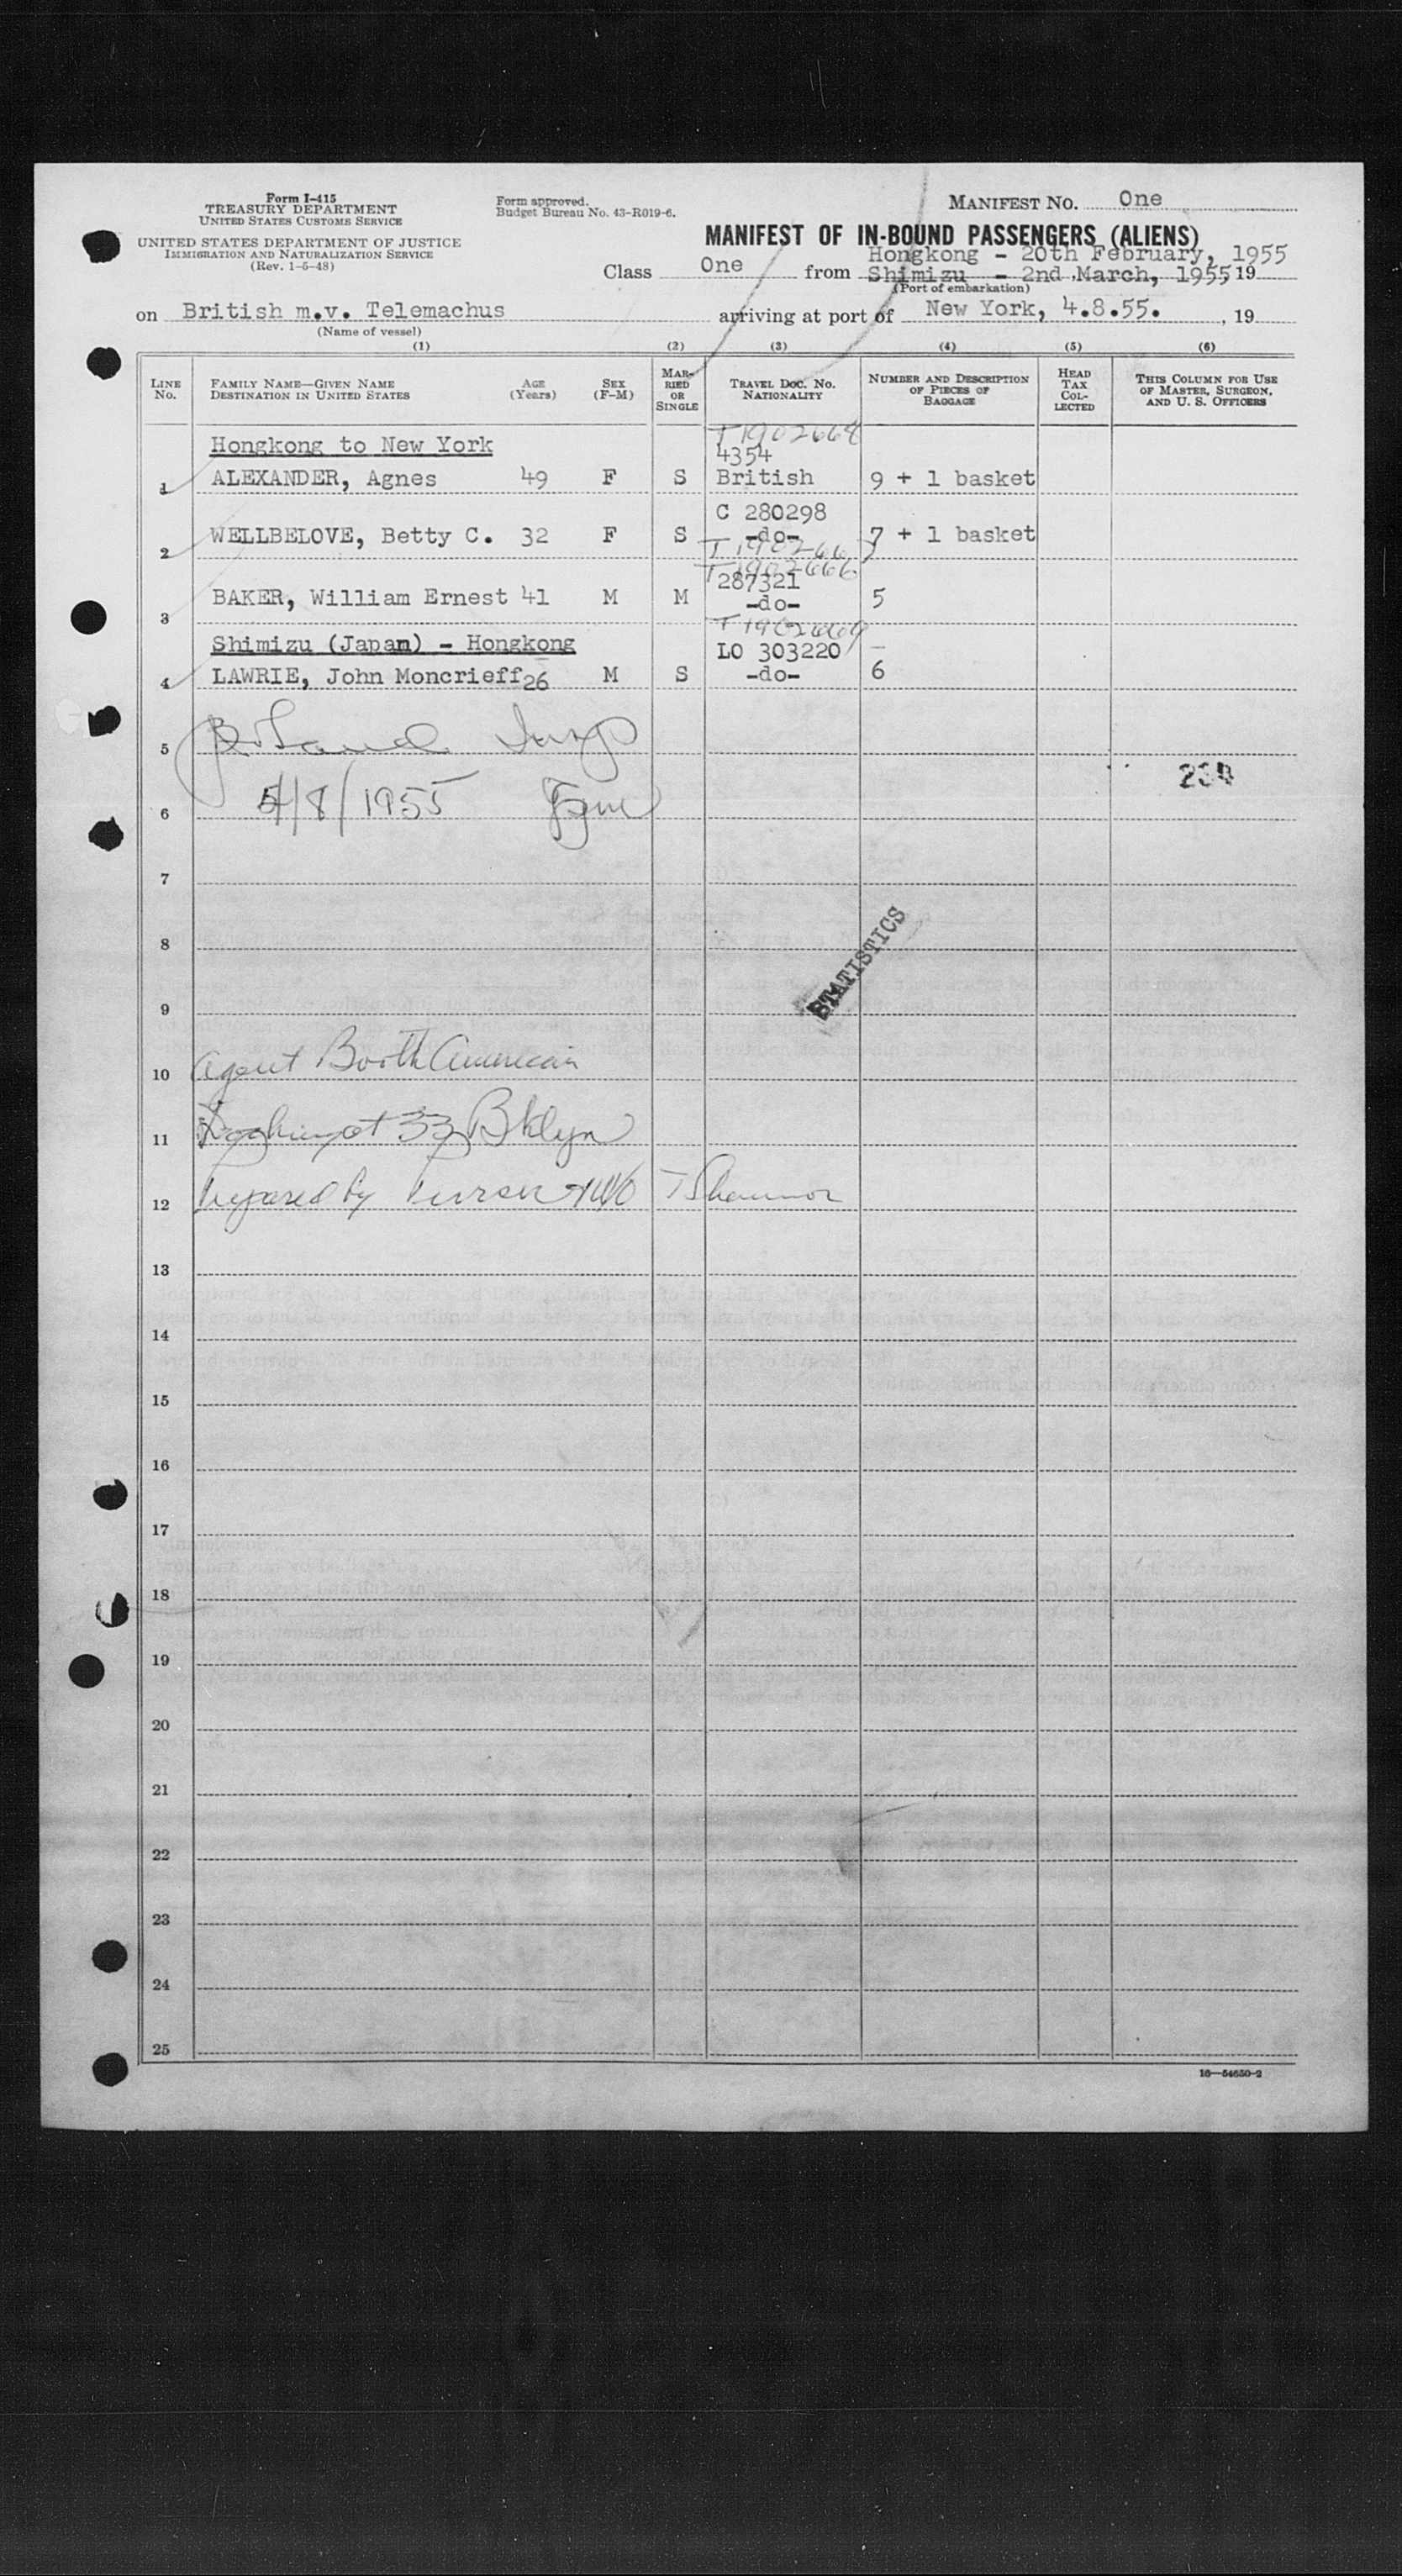 Form I-415
TREASURY DEPARTMENT
UNITED STATES CUSTOMS SERVICE
UNITED STATES DEPARTMENT OF JUSTICE
IMMIGRATION AND NATURALIZATION SERVICE
(Rev. 1-5-48)
Form approved.
Budget Bureau No. 43-R019-6.
MANIFEST NO. One
MANIFEST OF IN-BOUND PASSENGERS (ALIENS)
Hongkong - 20th February, 1955
Class One from Shimizu - 2nd March, 1955 19
(Port of embarkation)
on British m.v. Telemachus arriving at port of New York, 4.8.55. , 19
(Name of vessel)
(1) (2) (3) (4) (5) (6)
LINE No. FAMILY NAME—GIVEN NAME DESTINATION IN UNITED STATES AGE (Years) SEX (F-M) MARRIED OR SINGLE TRAVEL DOC. NO. NATIONALITY NUMBER AND DESCRIPTION OF PIECES OF BAGGAGE HEAD TAX COLLECTED THIS COLUMN FOR USE OF MASTER, SURGEON, AND U. S. OFFICERS
T1902668
Hongkong to New York 4354
1 ALEXANDER, Agnes 49 F S British 9 + 1 basket
C 280298
2 WELLBELOVE, Betty C. 32 F S -do- 7 + 1 basket
T1902667
T1902666
287321
3 BAKER, William Ernest 41 M M -do- 5
T1902669
Shimizu (Japan) - Hongkong LO 303220
4 LAWRIE, John Moncrieff 26 M S -do- 6
5
234
6 4/8/1955
7
8
STATISTICS
9
10 Agent Booth American
11 Docking at 33 Bklyn
12 Prepared by Purser T Shannon
13
14
15
16
17
18
19
20
21
22
23
24
25
16—54650-2